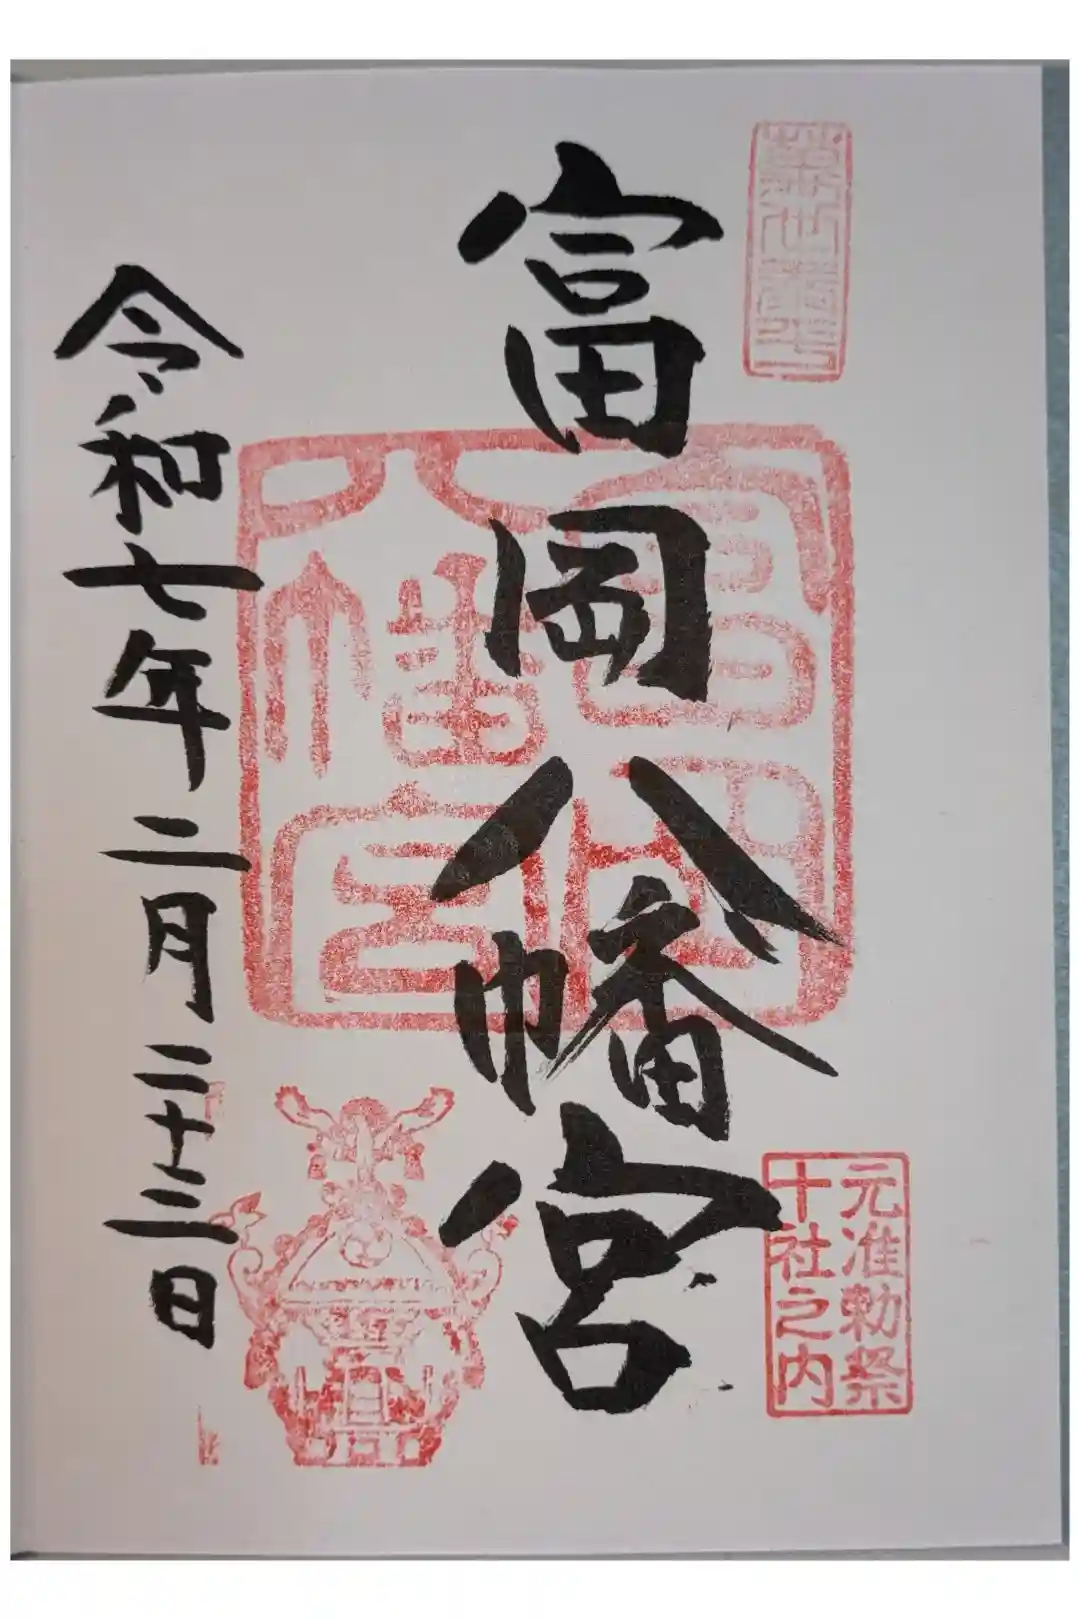 富岡八幡宮
元准勅祭
十社之内
富岡
八幡宮
令和七年二月二十三日